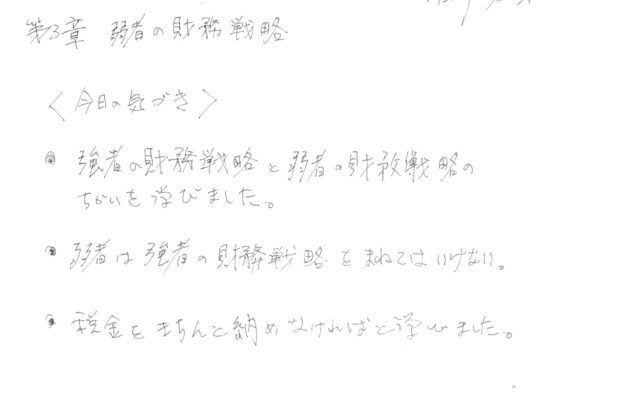 第3章 弱者の財務戦略
〈今日の気づき〉
• 強者の財務戦略と弱者の財務戦略の
ちがいを学びました。
• 弱者は強者の財務戦略をまねてはいけない。
• 税金をきちんと納めなければと学びました。